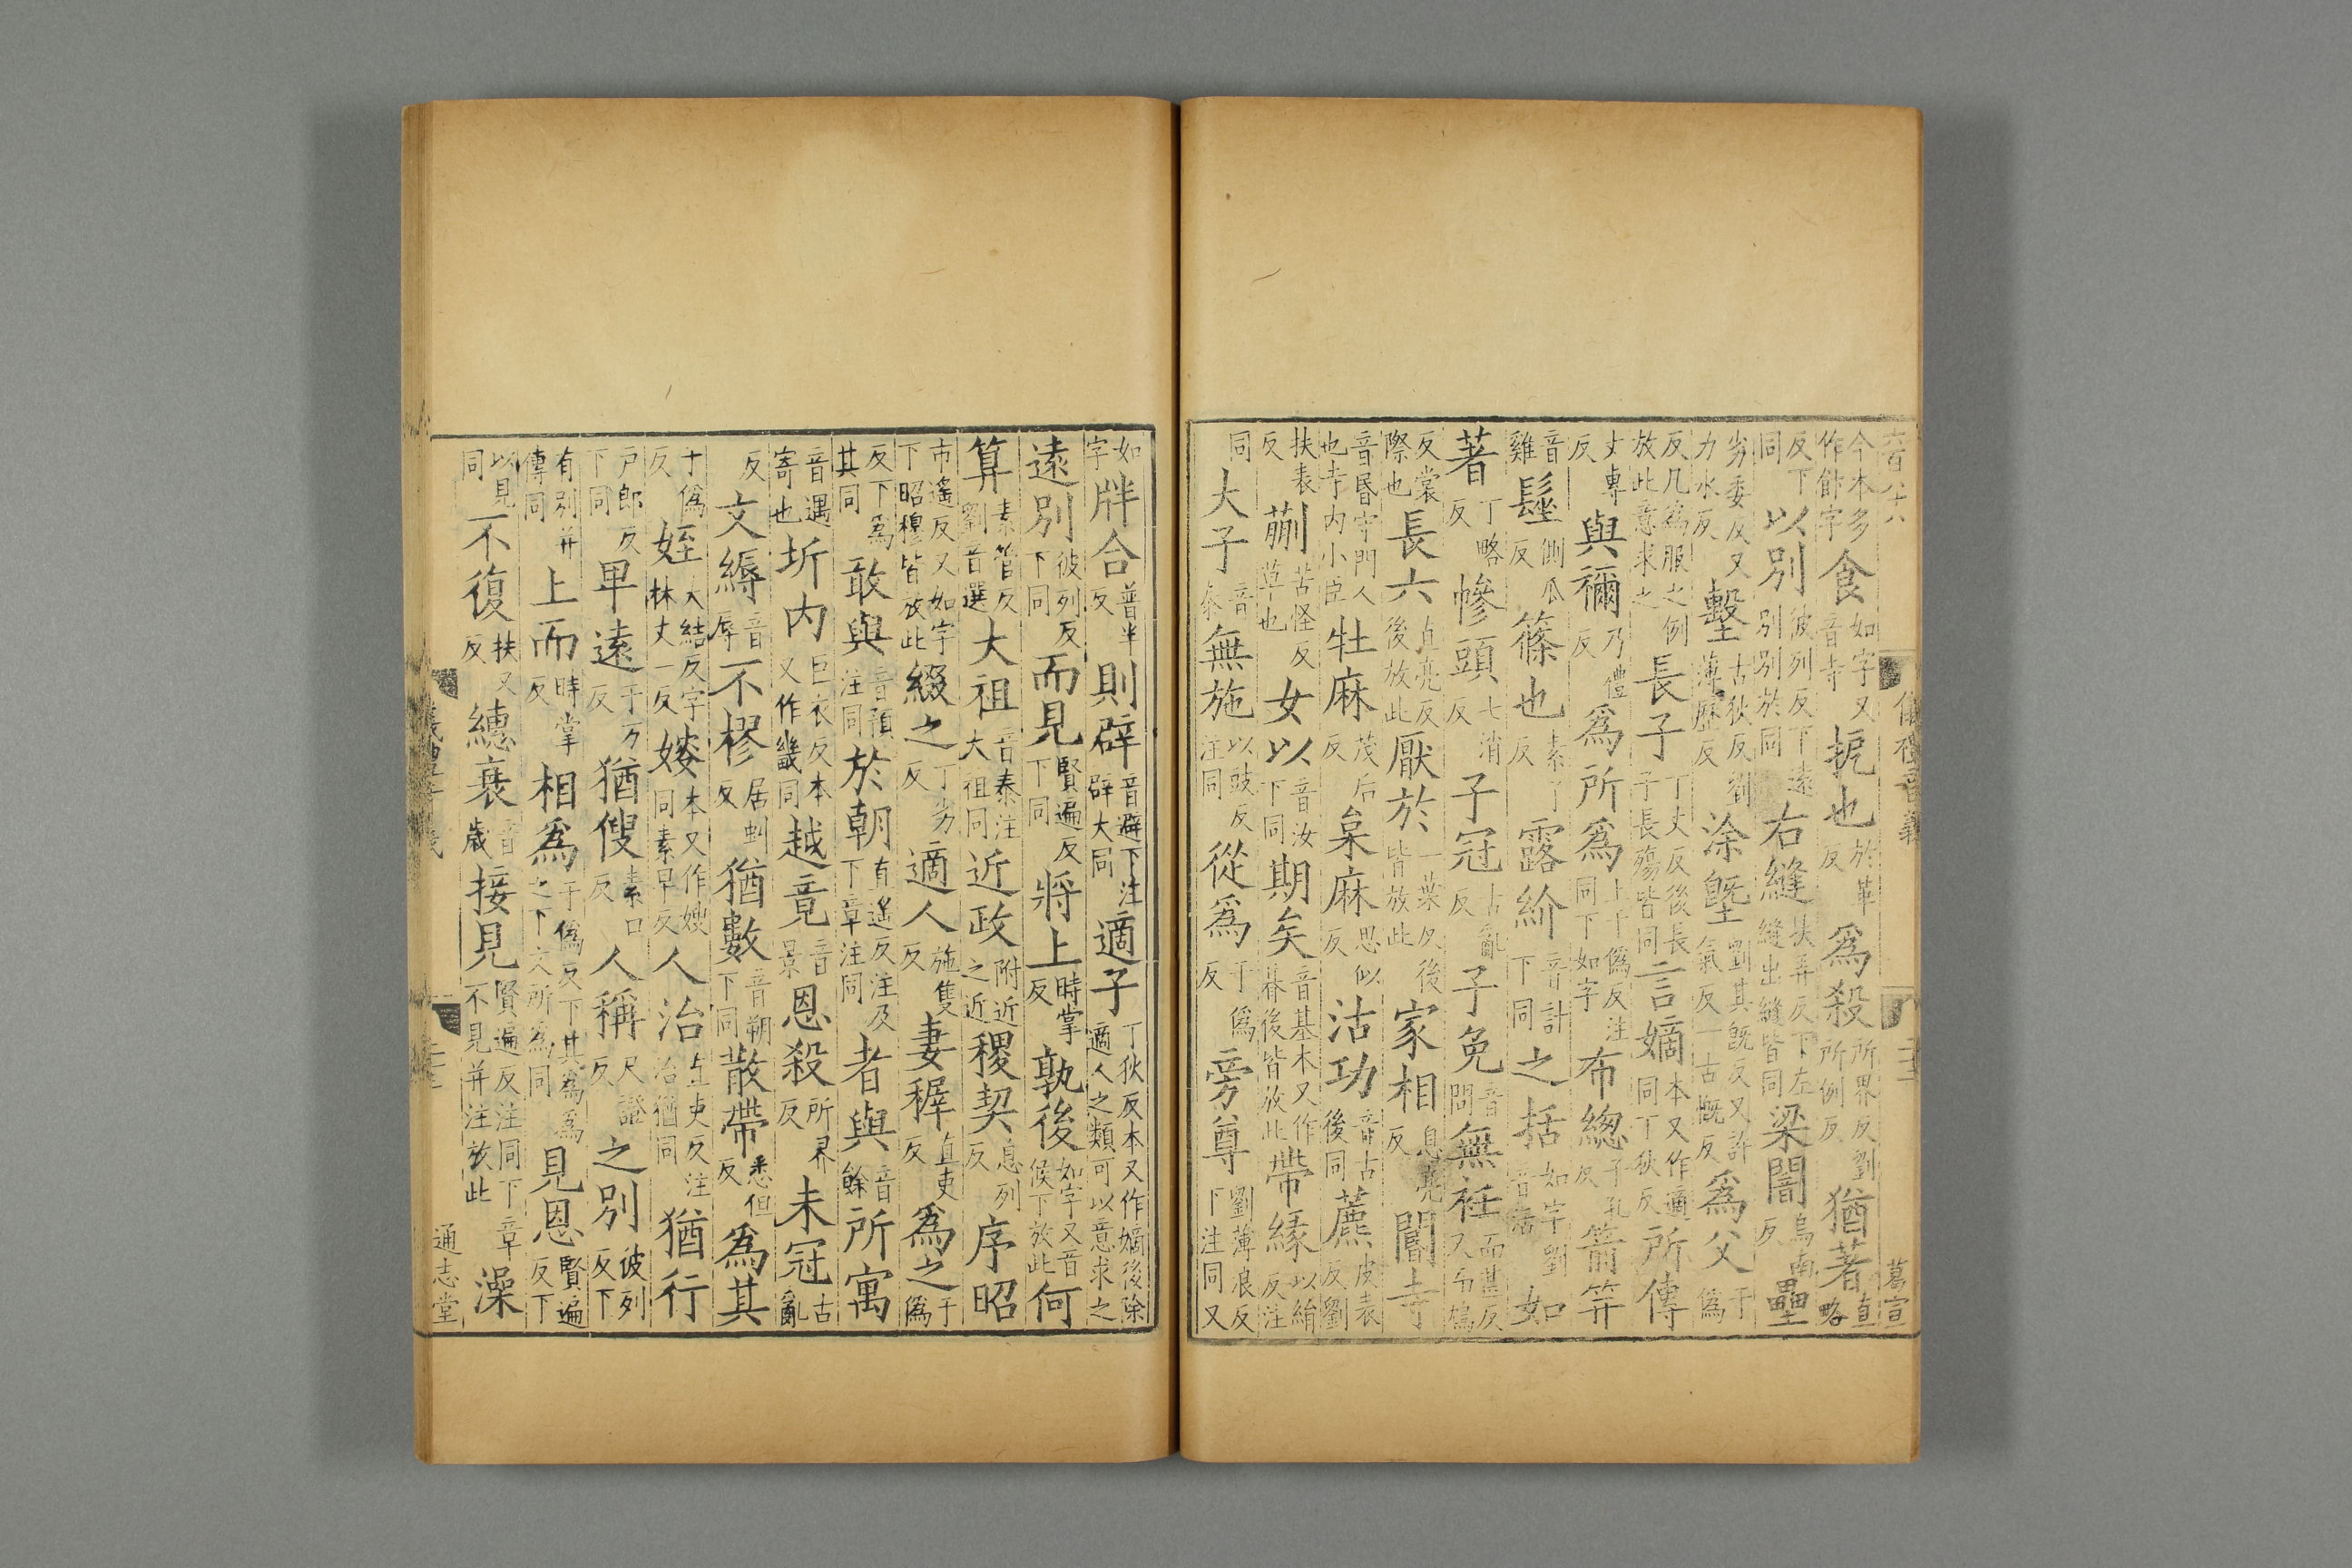 儀禮音義
葛宣
今本多作飾字食如字又音寺搤也於革反爲殺所界反劉所例反猶著直略
反下同以別彼列反下遠別別於同右縫扶弄反下左縫出縫皆同梁闇烏南反壘
劣委反又力水反墼古狄反劉薄歷反涂塈劉其旣反又許氣反一古慨反爲父于僞
反凡爲服之例放此意求之長子丁丈反後長子長殤皆同言嫡本又作適同丁狄反所傳
丈專反與禰乃禮反爲所爲上于僞反注同下如字布總子孔反箭笄
音雞髽側瓜反篠也素了反露紒音計下同之括如字劉音活如
著丁略反幓頭七消反子冠古亂反子免音問無衽而甚反又而鴆
反裳際也長六直亮反後放此厭於一葉反後皆放此家相息亮反閽寺
音昬守門人也寺內小臣牡麻茂后反枲麻思似反沽功音古後同藨皮表反劉
扶表反蒯苦怪反草也女以音汝下同期矣音基本又作朞後皆放此帶緣以絹反注
同大子音泰無施以豉反注同從爲于僞反旁尊劉薄浪反下注同又
如字牉合普半反則辟音避下注辟大同適子丁狄反本又作嫡後除適人之類可以意求之
遠別彼列反下同而見賢遍反下同將上時掌反孰後如字又音候下放此何
算素管反劉音選大祖音泰注大祖同近政附近之近稷契息列反序昭
市遙反又如字下昭穆皆放此綴之丁劣反適人施隻反妻稺直吏反爲之于僞
反下爲其同敢與音預注同於朝直遙反注及下章注同者與音餘所寓
音遇寄也圻內巨衣反本又作畿同越竟音景恩殺所界反未冠古亂
反文縟音辱不樛居虯反猶數音朔下同散帶悉但反爲其
于僞反姪大結反字林丈一反㛮本又作嫂同素早反人治直吏反注治猶同猶行
戸郎反下同卑遠于万反猶傁素口反人稱尺證反之別彼列反下
有別并傳同上而時掌反相爲于僞反下其爲爲之下文所爲同見恩賢遍反下
以見同不復扶又反繐衰音歲接見賢遍反注同下章不見并注放此澡
通志堂